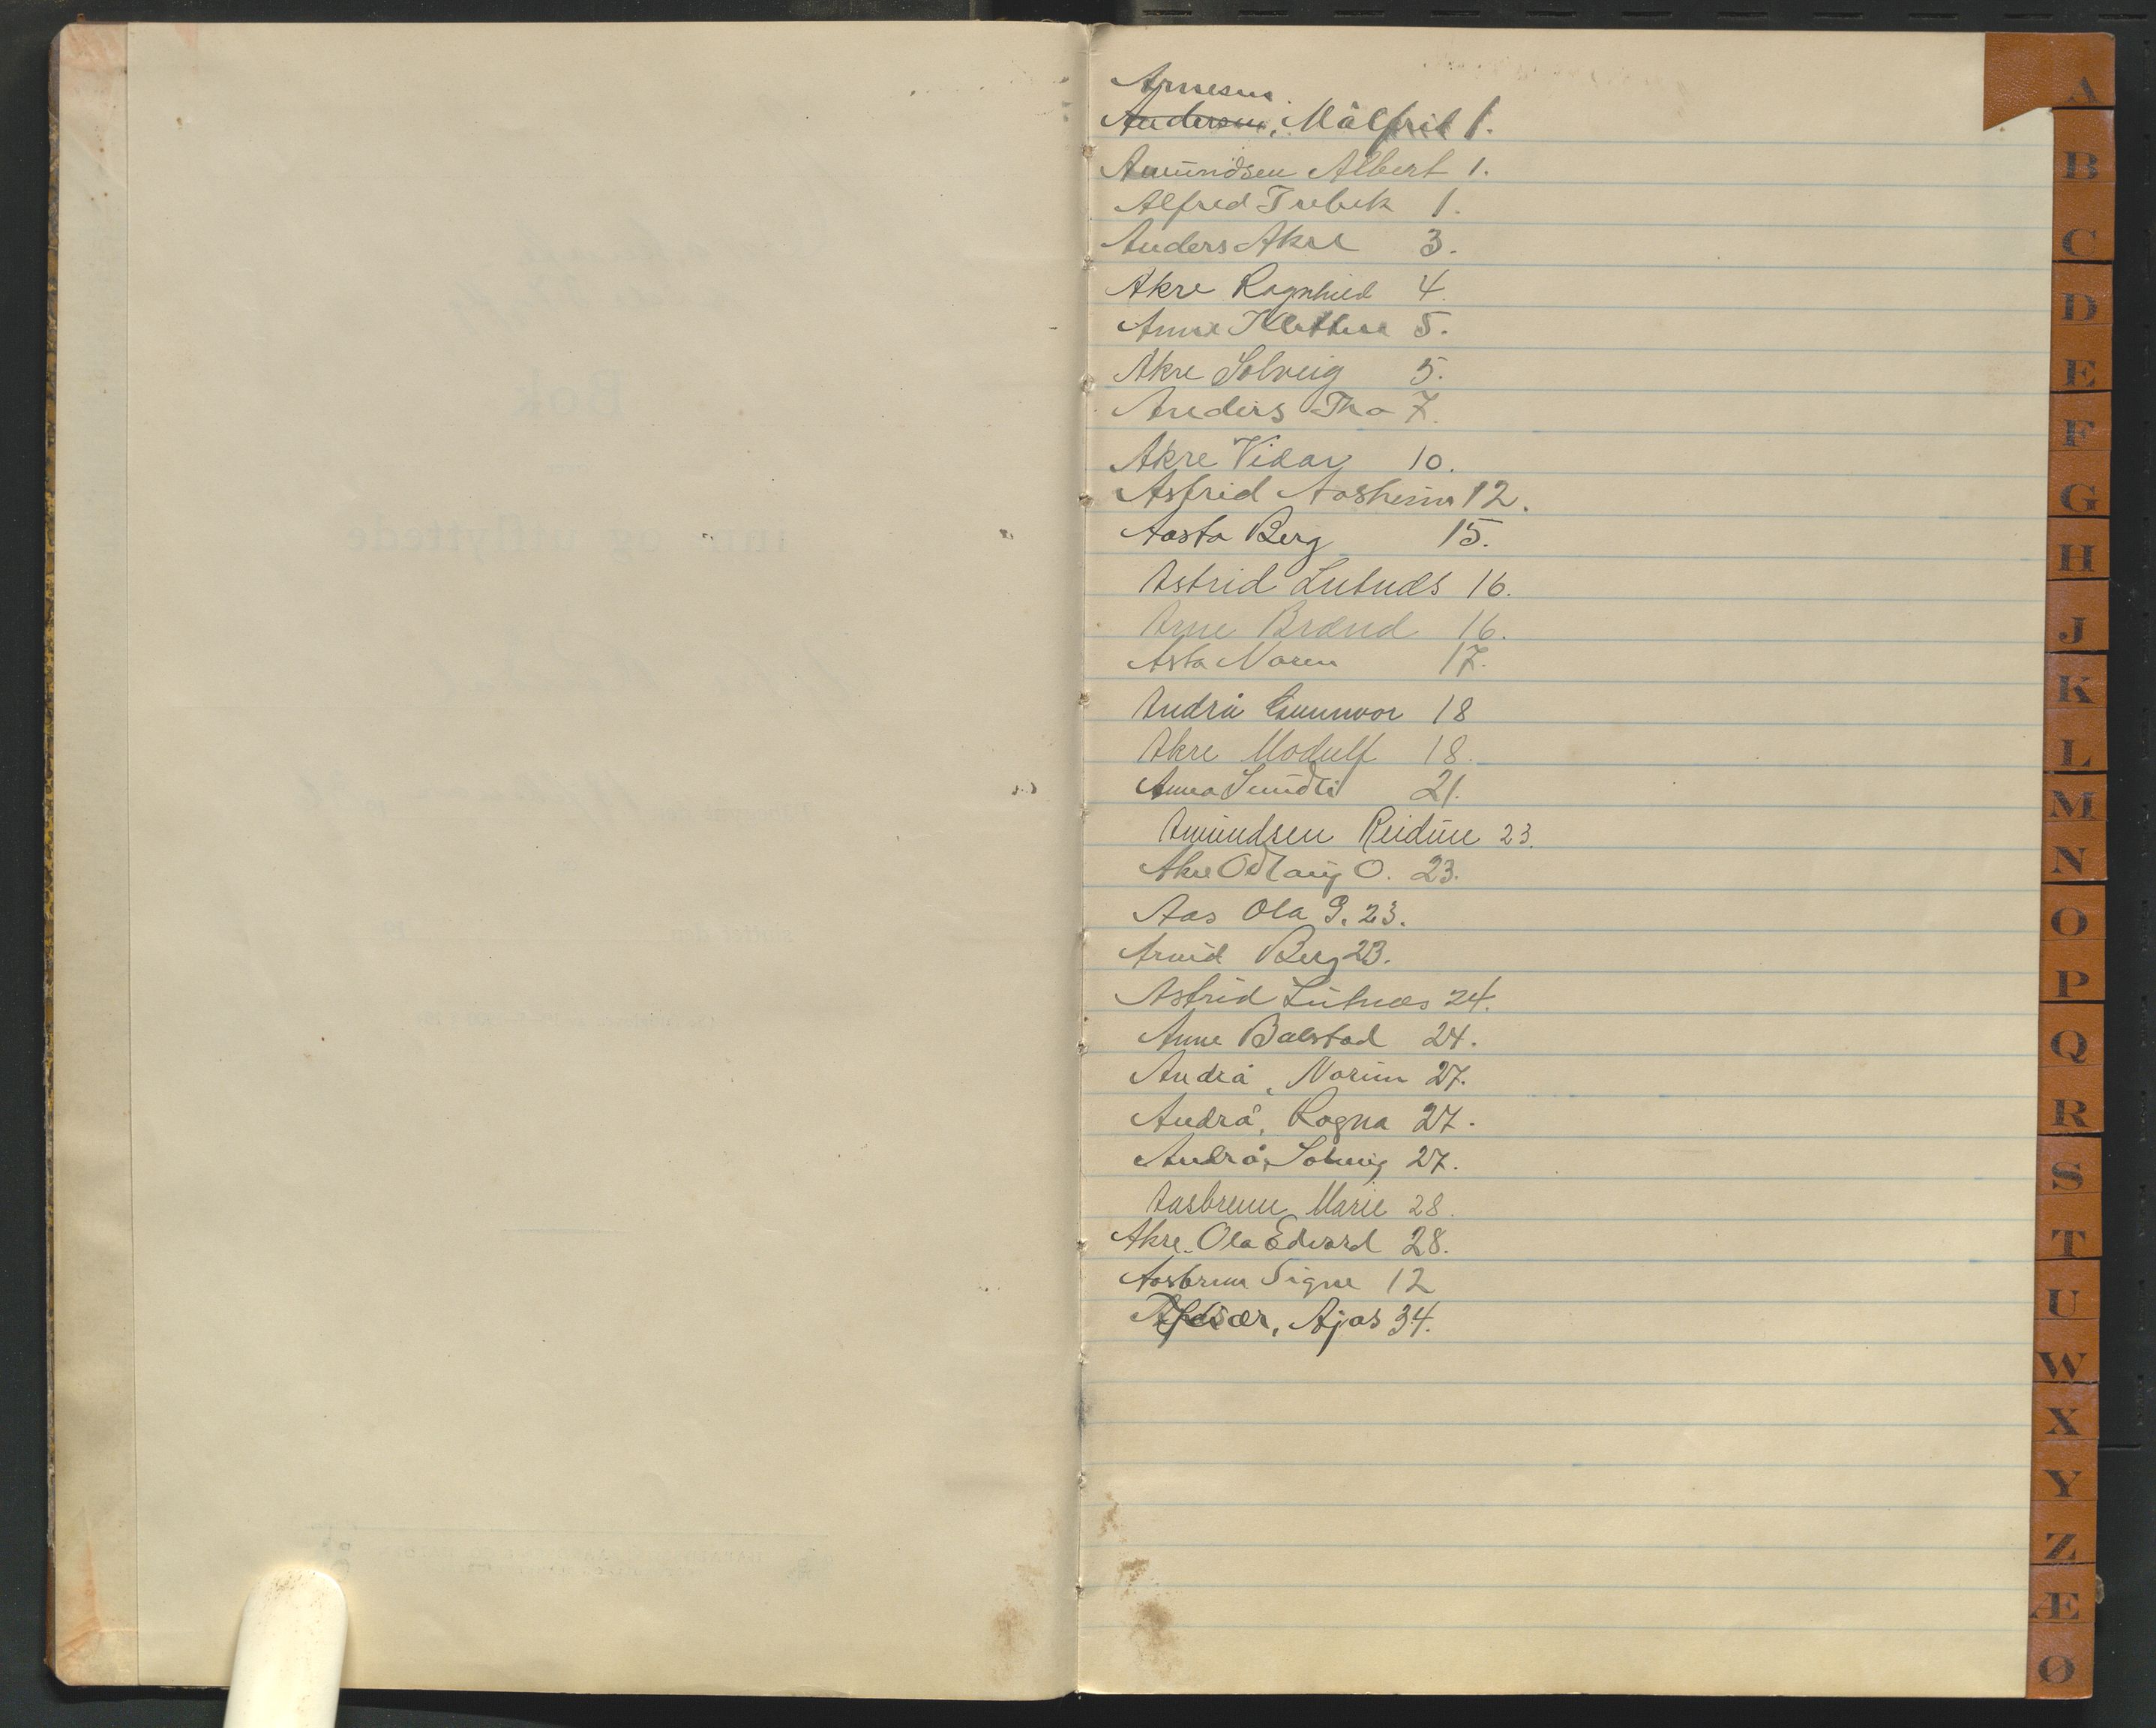 Arnesen
Andersen, Målfrid 1.
Amundsen Albert 1.
Alfred Trebek 1.
Anders Akre 3.
Akre Ragnhild 4.
Anne Klettum 5.
Akre Solveig 5.
Anders Tho 7.
Akre Vidar 10.
Astrid Aasheim 12.
Aasta Berg 15.
Astrid Lutnæs 16.
Arne Brænd 16.
Asta Noren 17.
Andrå Gunnvor 18
Akre Modulf 18.
Anna Sundli 21.
Amundsen Reidun 23.
Akre Odlaug O. 23.
Aas Ola G. 23.
Arvid Berg 23.
Astrid Lutnæs 24.
Anne Balstad 24.
Andrå, Norunn 27.
Andrå, Ragna 27.
Andrå, Solveig 27.
Aasbrenn Marie 28.
Akre Ola Edvard 28.
Aasbrenn Signe 12
Ajos 34.
A
B
C
D
E
F
G
H
J
K
L
M
N
O
P
Q
R
S
T
U
W
X
Y
Z
Æ
Ø